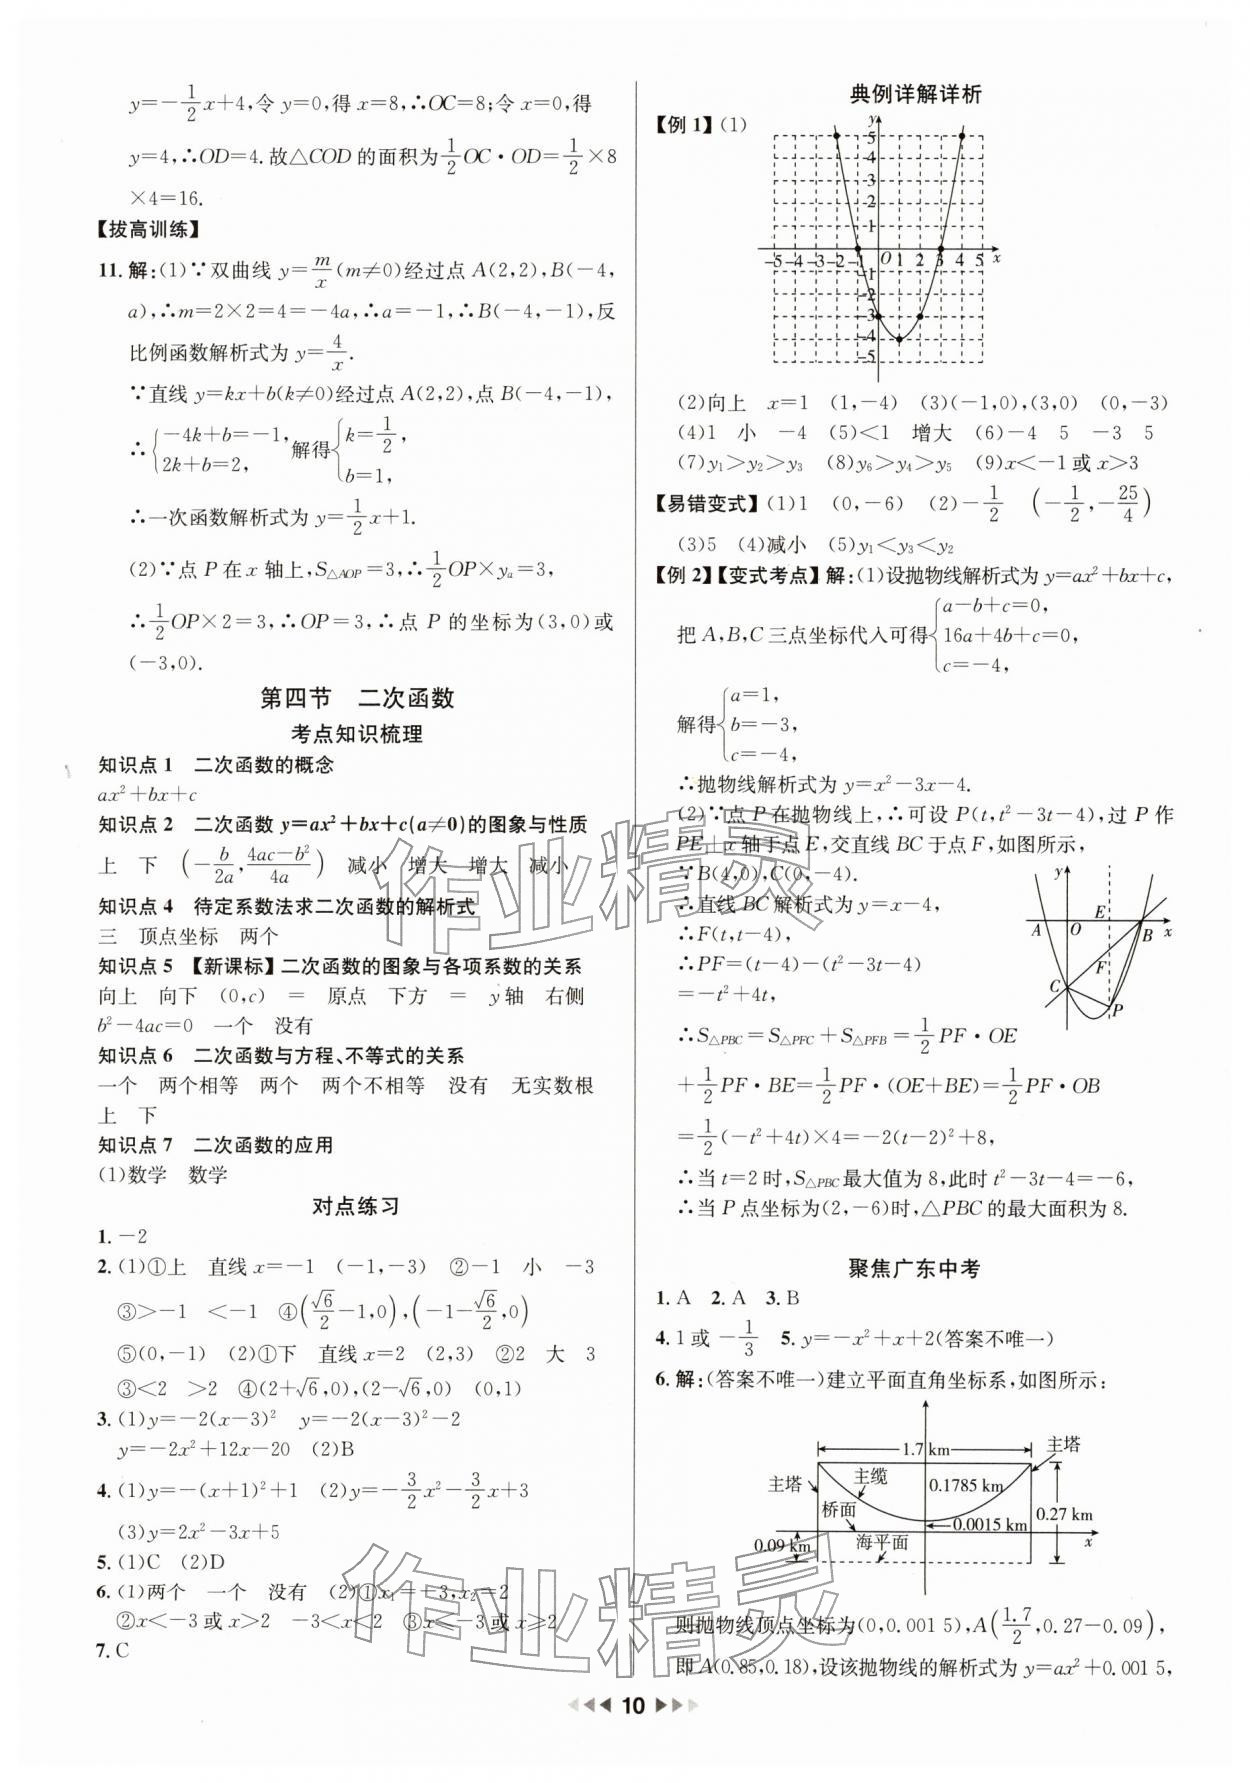 y=-1/2x+4,令 y=0,得 x=8,∴OC=8;令 x=0,得
y=4,∴OD=4.故△COD 的面积为1/2OC·OD=1/2×8
×4=16.
【拔高训练】
11. 解:(1)∵双曲线 y=m/x(m≠0)经过点 A(2,2),B(-4,
a),∴m=2×2=4=-4a,∴a=-1,∴B(-4,-1),反
比例函数解析式为 y=4/x.
∵直线 y=kx+b(k≠0)经过点 A(2,2),点 B(-4,-1),
∴{-4k+b=-1, 2k+b=2, 解得{k=1/2, b=1,
∴一次函数解析式为 y=1/2x+1.
(2)∵点 P 在 x 轴上,S△AOP=3,∴1/2OP×yₐ=3,
∴1/2OP×2=3,∴OP=3,∴点 P 的坐标为(3,0)或
(-3,0).
第四节 二次函数
考点知识梳理
知识点 1 二次函数的概念
ax²+bx+c
知识点 2 二次函数 y=ax²+bx+c(a≠0)的图象与性质
上 下 (-b/2a, 4ac-b²/4a) 减小 增大 增大 减小
知识点 4 待定系数法求二次函数的解析式
三 顶点坐标 两个
知识点 5 【新课标】二次函数的图象与各项系数的关系
向上 向下 (0,c) = 原点 下方 = y 轴 右侧
b²-4ac=0 一个 没有
知识点 6 二次函数与方程、不等式的关系
一个 两个相等 两个 两个不相等 没有 无实数根
上 下
知识点 7 二次函数的应用
(1)数学 数学
对点练习
1. -2
2. (1)①上 直线 x=-1 (-1,-3) ②-1 小 -3
③>-1 <-1 ④(√6/2-1,0),(-1-√6/2,0)
⑤(0,-1) (2)①下 直线 x=2 (2,3) ②2 大 3
③<2 >2 ④(2+√6,0),(2-√6,0) (0,1)
3. (1)y=-2(x-3)² y=-2(x-3)²-2
y=-2x²+12x-20 (2)B
4. (1)y=-(x+1)²+1 (2)y=-3/2x²-3/2x+3
(3)y=2x²-3x+5
5. (1)C (2)D
6. (1)两个 一个 没有 (2)①x₁=-3,x₂=2
②x<-3 或 x>2 -3<x<2 ③x≤-3 或 x≥2
7. C
典例详解详析
【例 1】(1)
y
5
4
3
2
1
-5 -4 -3 -2 -1 O 1 2 3 4 5 x
-1
-2
-3
-4
-5
(2)向上 x=1 (1,-4) (3)(-1,0),(3,0) (0,-3)
(4)1 小 -4 (5)<1 增大 (6)-4 5 -3 5
(7)y₁>y₂>y₃ (8)y₆>y₄>y₅ (9)x<-1 或 x>3
【易错变式】(1)1 (0,-6) (2)-1/2 (-1/2,-25/4)
(3)5 (4)减小 (5)y₁<y₃<y₂
【例 2】【变式考点】解:(1)设抛物线解析式为 y=ax²+bx+c,
把 A,B,C 三点坐标代入可得{a-b+c=0, 16a+4b+c=0, c=-4,
解得{a=1, b=-3, c=-4,
∴抛物线解析式为 y=x²-3x-4.
(2)∵点 P 在抛物线上,∴可设 P(t,t²-3t-4),过 P 作
PE⊥x 轴于点 E,交直线 BC 于点 F,如图所示,
∵B(4,0),C(0,-4).
∴直线 BC 解析式为 y=x-4,
∴F(t,t-4),
∴PF=(t-4)-(t²-3t-4)
=-t²+4t,
y
A O E B x
F
C
P
∴S△PBC=S△PFC+S△PFB=1/2PF·OE
+1/2PF·BE=1/2PF·(OE+BE)=1/2PF·OB
=1/2(-t²+4t)×4=-2(t-2)²+8,
∴当 t=2 时,S△PBC最大值为 8,此时 t²-3t-4=-6,
∴当 P 点坐标为(2,-6)时,△PBC 的最大面积为 8.
聚焦广东中考
1. A 2. A 3. B
4. 1 或 -1/3 5. y=-x²+x+2(答案不唯一)
6. 解:(答案不唯一)建立平面直角坐标系,如图所示:
1.7 km
主塔
主塔
主缆
0.1785 km
桥面
0.27 km
0.0015 km
0.09 km
海平面
x
则抛物线顶点坐标为(0,0.001 5),A(1.7/2,0.27-0.09),
即 A(0.85,0.18),设该抛物线的解析式为 y=ax²+0.001 5,
10
作业精灵
作业精灵